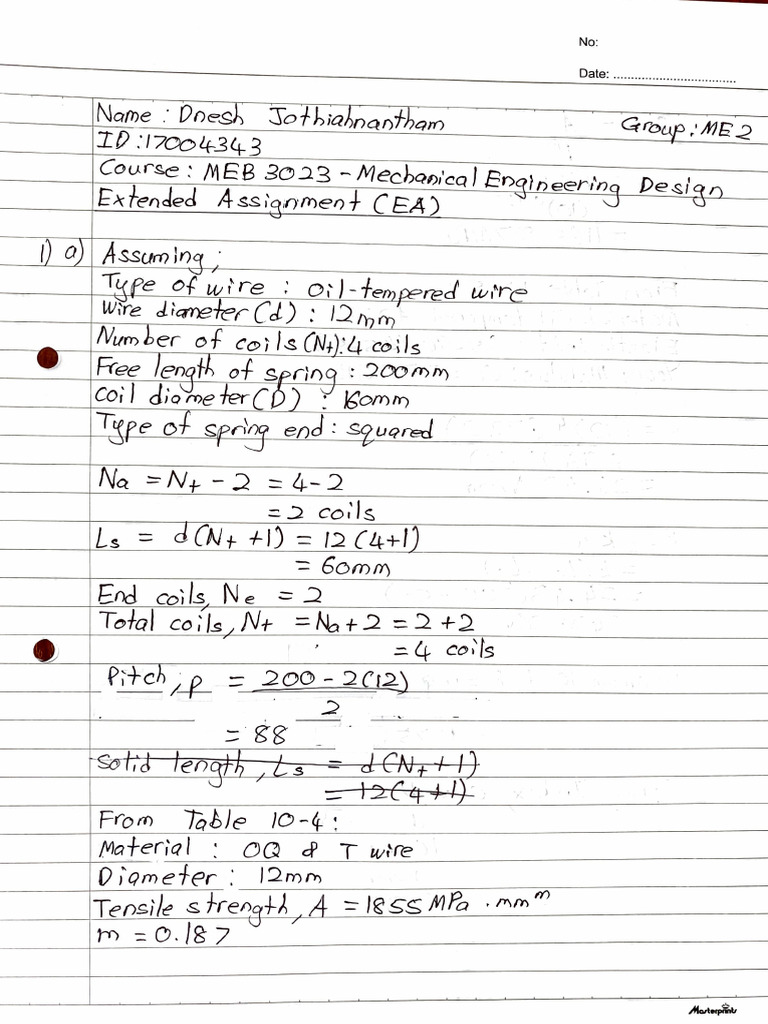 No:
Date: ....................................
Name : Dnesh Jothiahnantham Group: ME 2
ID :17004343
Course : MEB 3023 - Mechanical Engineering Design
Extended Assignment (EA)
1) a) Assuming ;
Type of wire : oil-tempered wire
Wire diameter (d) : 12mm
Number of coils (Nt): 4 coils
Free length of spring : 200mm
Coil diameter (D) : 160mm
Type of spring end : squared
Na = Nt - 2 = 4-2
= 2 coils
Ls = d(Nt +1) = 12 (4+1)
= 60mm
End coils, Ne = 2
Total coils, Nt = Na + 2 = 2 + 2
= 4 coils
Pitch, p = 200 - 2(12)
2
= 88
Solid length, Ls = d(Nt + 1)
= 12(4+1)
From Table 10-4 :
Material : OQ & T wire
Diameter : 12mm
Tensile strength, A = 1855 MPa . mm^m
m = 0.187
Masterprints